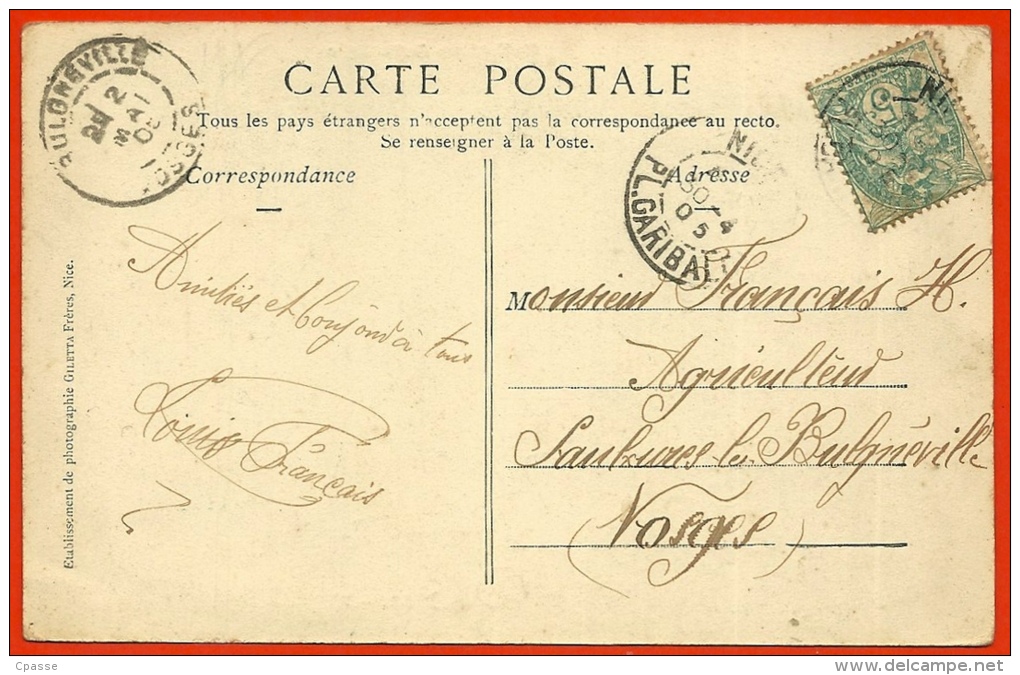 CARTE POSTALE
Tous les pays étrangers n'acceptent pas la correspondance au recto.
Se renseigner à la Poste.
Correspondance
Adresse
BULGNÉVILLE
2
MAI
05
VOSGES
NICE
30 4
05
PL. GARIBALDI
Amitiés et bonjour à tous
Louis Français
Monsieur Français H.
Agriculteur
Saulxures les Bulgnéville
(Vosges)
Etablissement de photographie GILETTA Frères, Nice.
Cpasse
www.delcampe.net